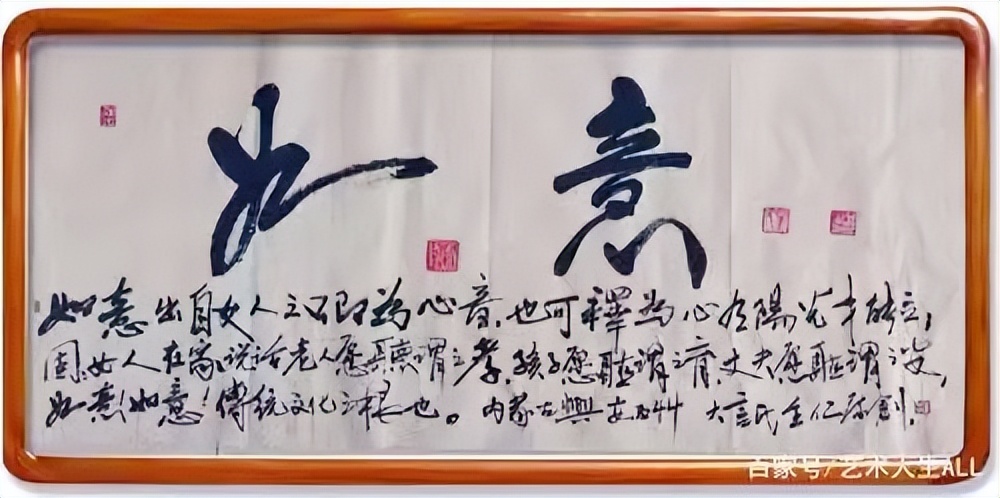 如意
如意出自女人之口即为心音,也可釋為心有陽光才能立;
固女人在家说话老人愿聽謂之孝,孩子愿聽謂之育,丈夫愿聽謂之安,
如意!如意!傳統文化之根也。内蒙古興安 大言氏全仁 創
百家号/艺术人生ALL